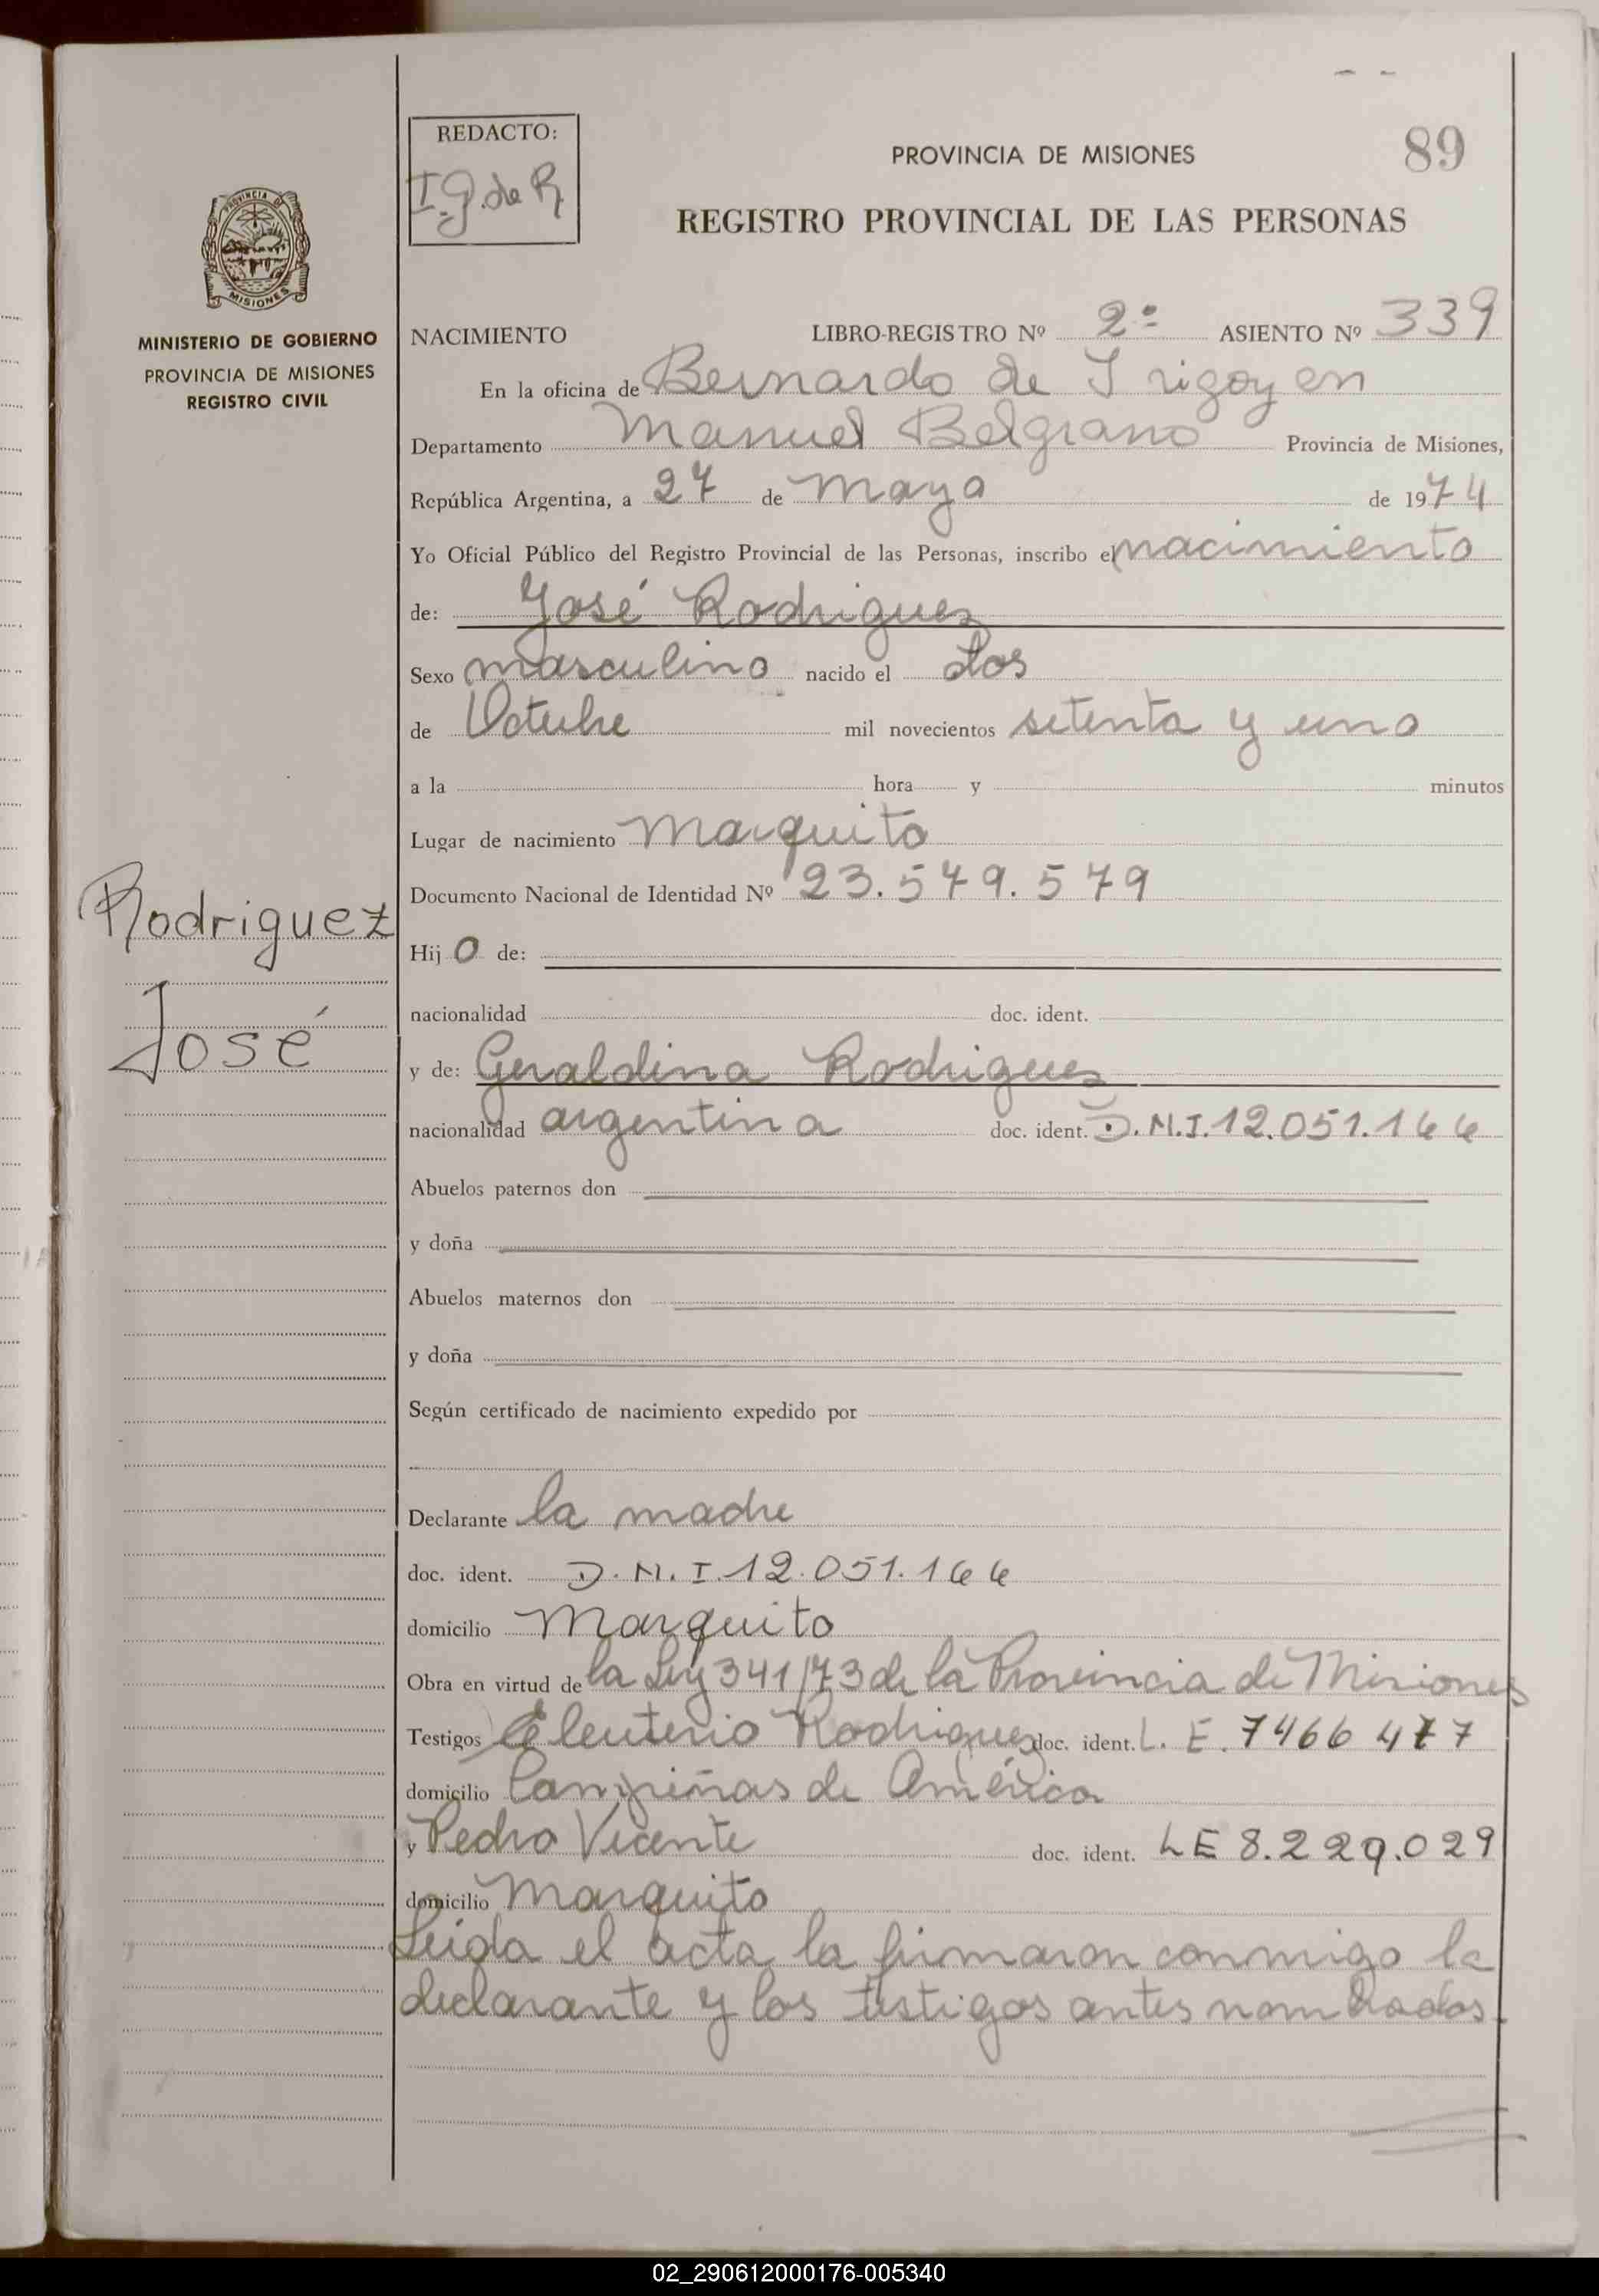 REDACTO:
I. G. de R
PROVINCIA DE MISIONES
89
REGISTRO PROVINCIAL DE LAS PERSONAS
PROVINCIA DE
MISIONES
MINISTERIO DE GOBIERNO
PROVINCIA DE MISIONES
REGISTRO CIVIL
NACIMIENTO LIBRO-REGISTRO Nº 2º ASIENTO Nº 339
En la oficina de Bernardo de Irigoyen
Departamento Manuel Belgrano Provincia de Misiones,
República Argentina, a 27 de mayo de 1974
Yo Oficial Público del Registro Provincial de las Personas, inscribo el nacimiento
de: José Rodrigues
Sexo masculino nacido el dos
de Octubre mil novecientos setenta y uno
a la hora y minutos
Lugar de nacimiento Marquito
Documento Nacional de Identidad Nº 23.579.579
Rodriguez
José
Hijo de:
nacionalidad doc. ident.
y de: Geraldina Rodrigues
nacionalidad argentina doc. ident. D.N.I. 12.051.166
Abuelos paternos don
y doña
Abuelos maternos don
y doña
Según certificado de nacimiento expedido por
Declarante la madre
doc. ident. D.N.I. 12.051.166
domicilio Marquito
Obra en virtud de la Ley 341/73 de la Provincia de Misiones
Testigos Eleuterio Rodrigues doc. ident. L. E. 7466 477
domicilio Campiñas de América
y Pedro Vicente doc. ident. LE 8.229.029
domicilio Marquito
Leida el acta la firmaron conmigo la
declarante y los testigos antes nombrados.
02_290612000176-005340